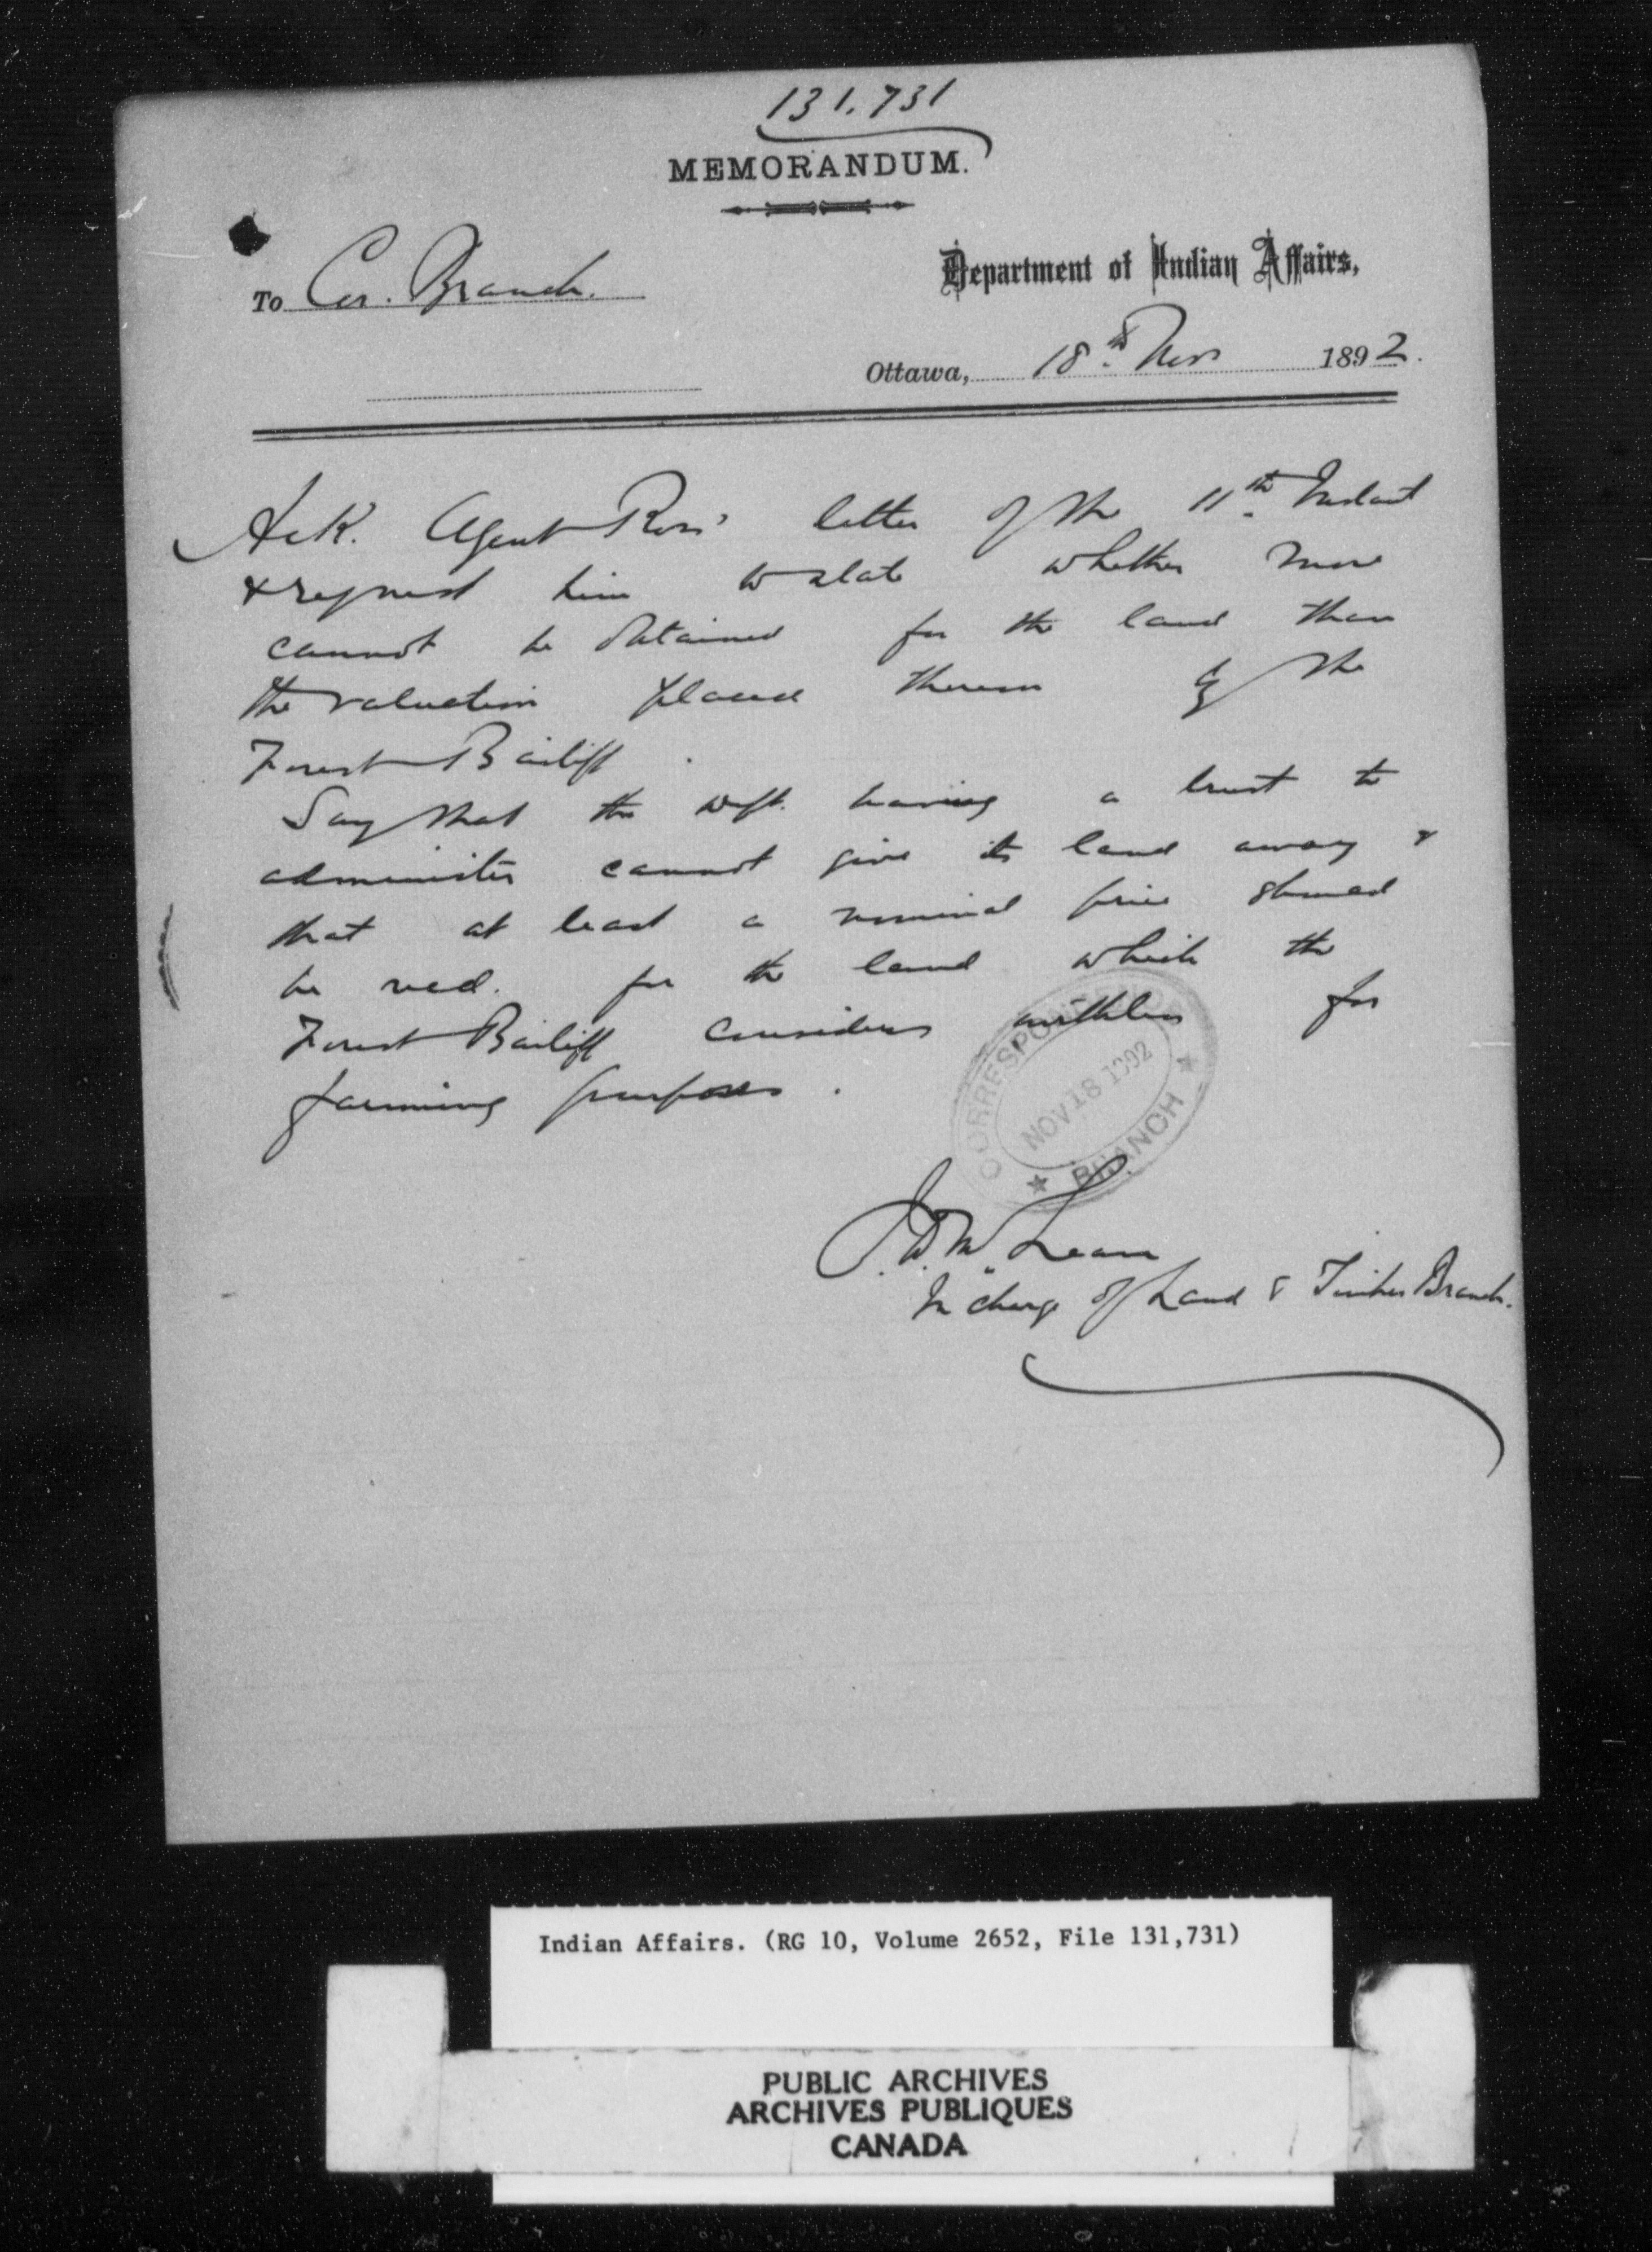 131.731
MEMORANDUM.
To Cor. Branch.
Department of Indian Affairs,
Ottawa, 18th Nov 1892.
Ack. Agent Ross' letter of the 11th Instant
& request him to state whether more
cannot be obtained for the land than
the valuation placed thereon by the
Forest Bailiff.
Say that the Dept. having a trust to
administer cannot give its land away &
that at least a nominal price should
be recd. for the land which the
Forest Bailiff considers worthless for
farming purposes.
CORRESPONDENCE
NOV 18 1892
★ BRANCH ★
J.D. McLean
In charge of Land & Timber Branch.
Indian Affairs. (RG 10, Volume 2652, File 131,731)
PUBLIC ARCHIVES
ARCHIVES PUBLIQUES
CANADA